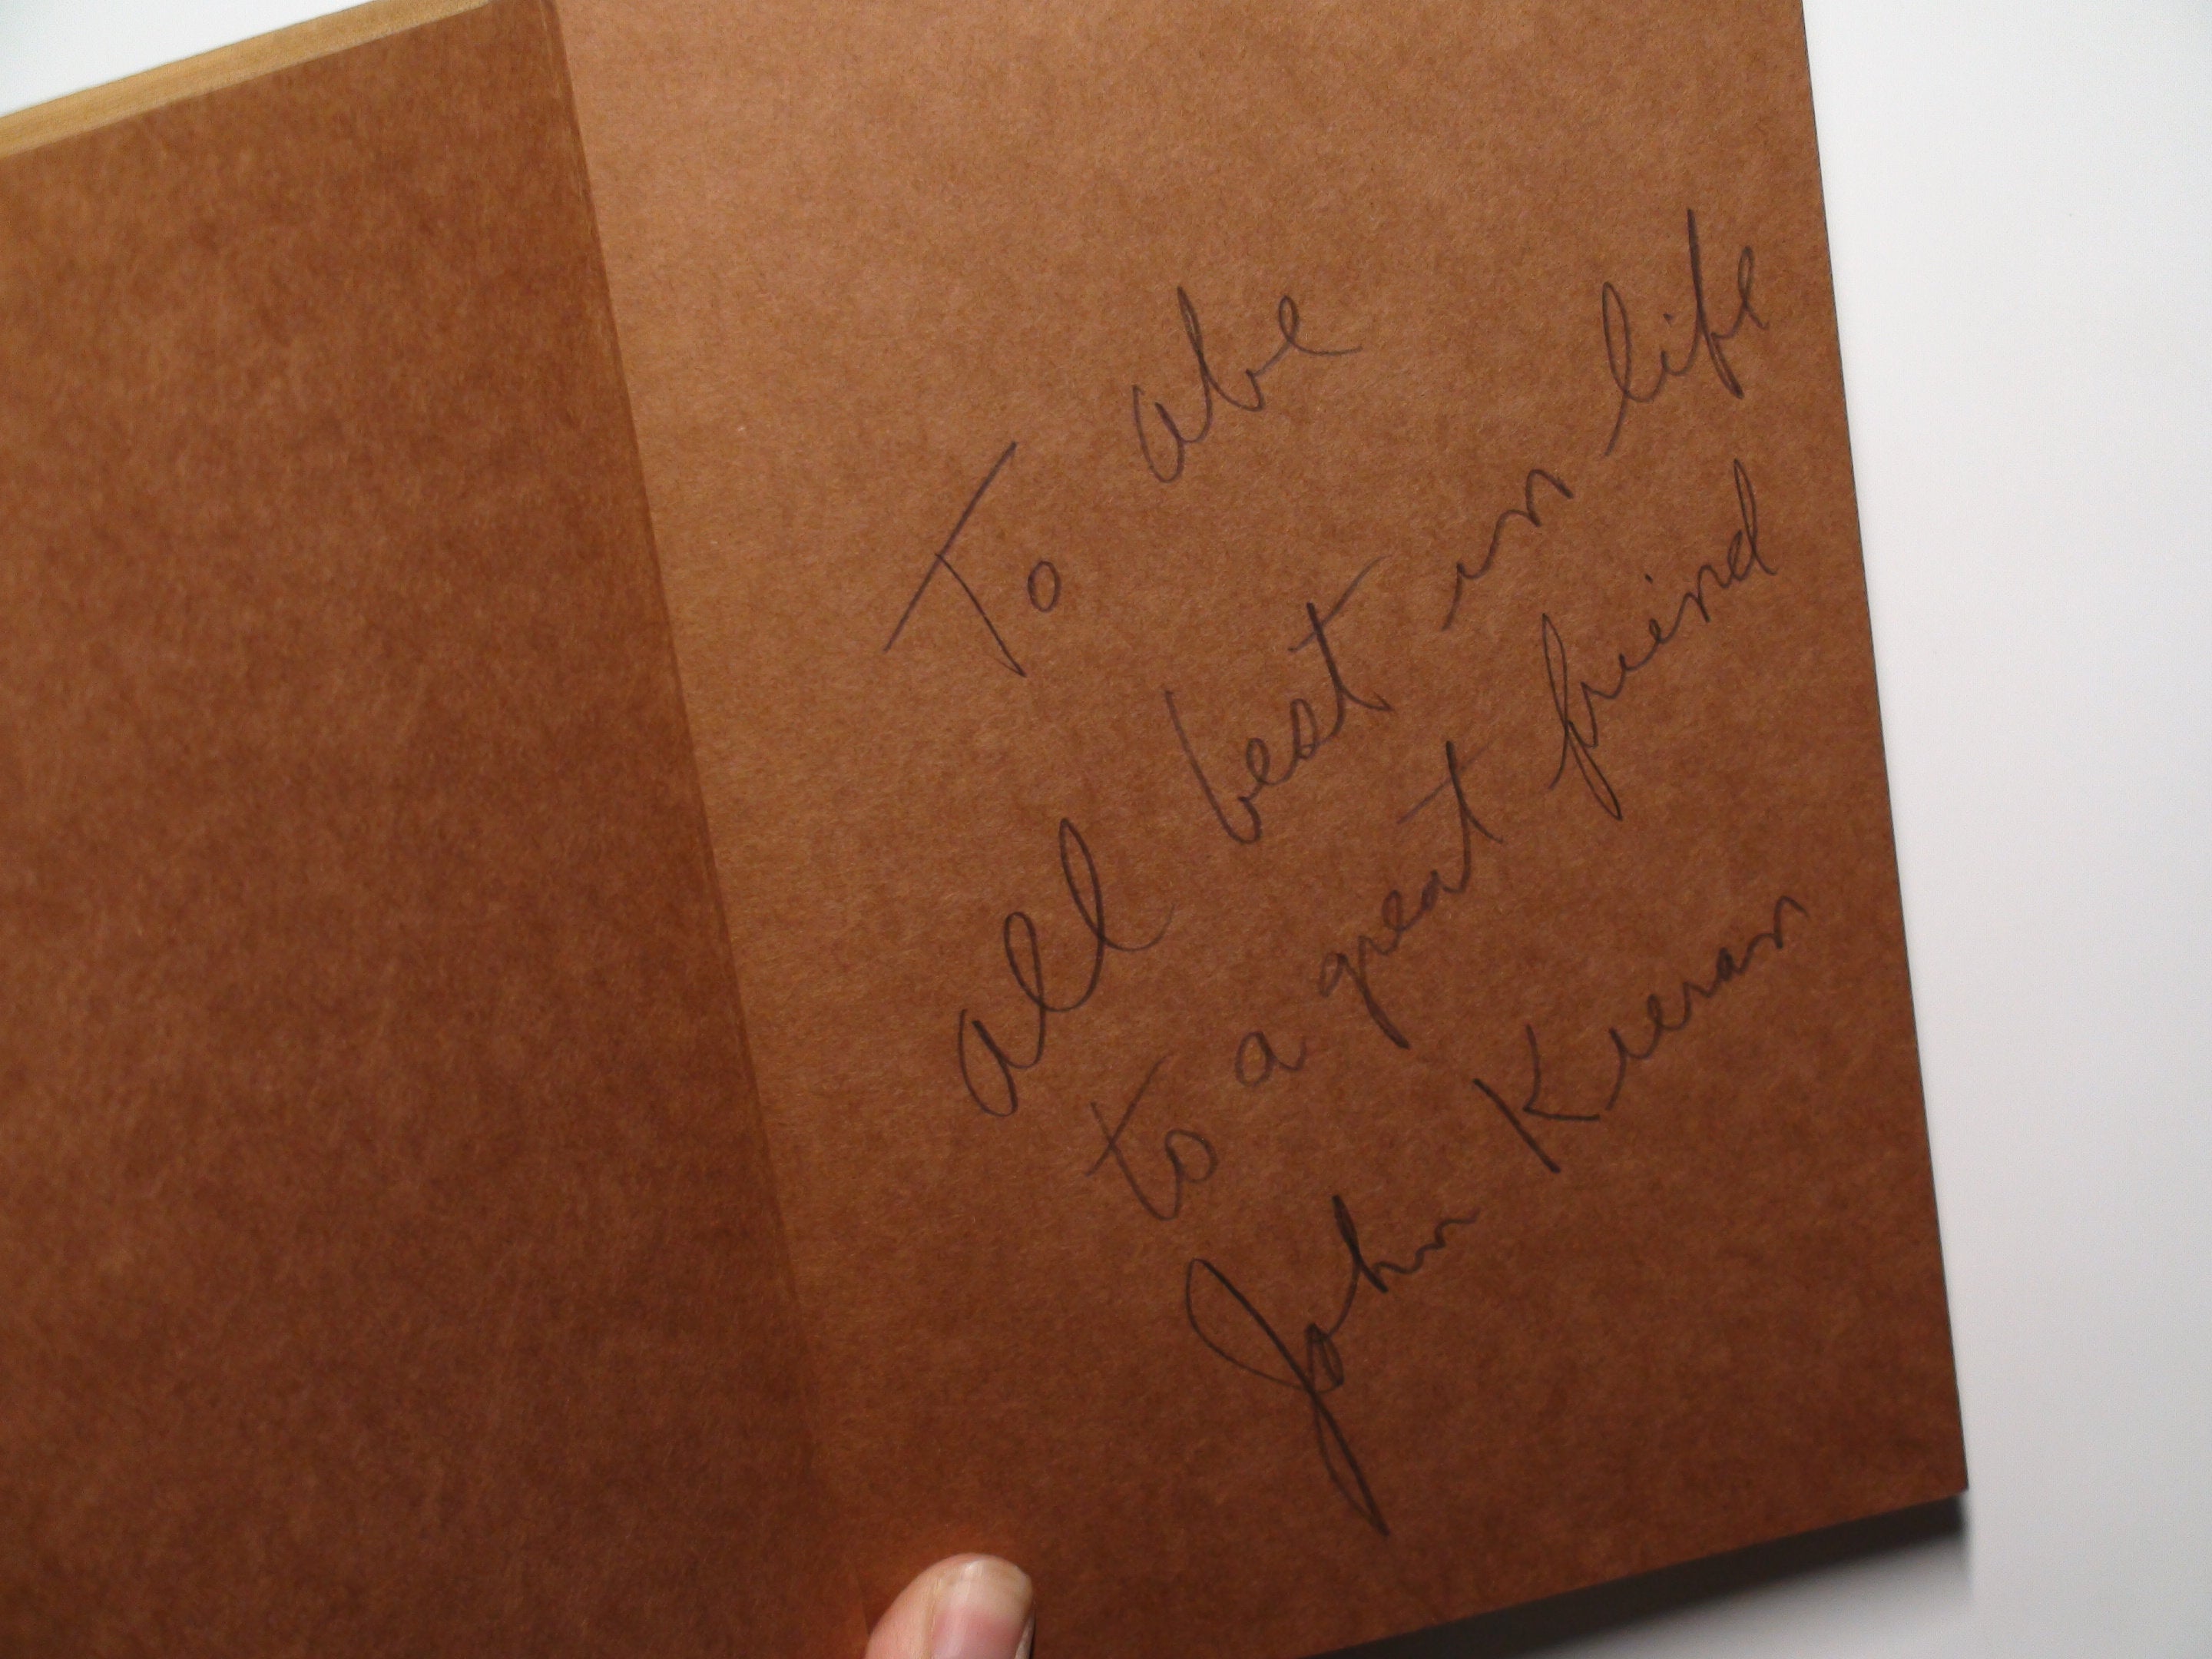 To abe
all best in life
to a great friend
John Kieran